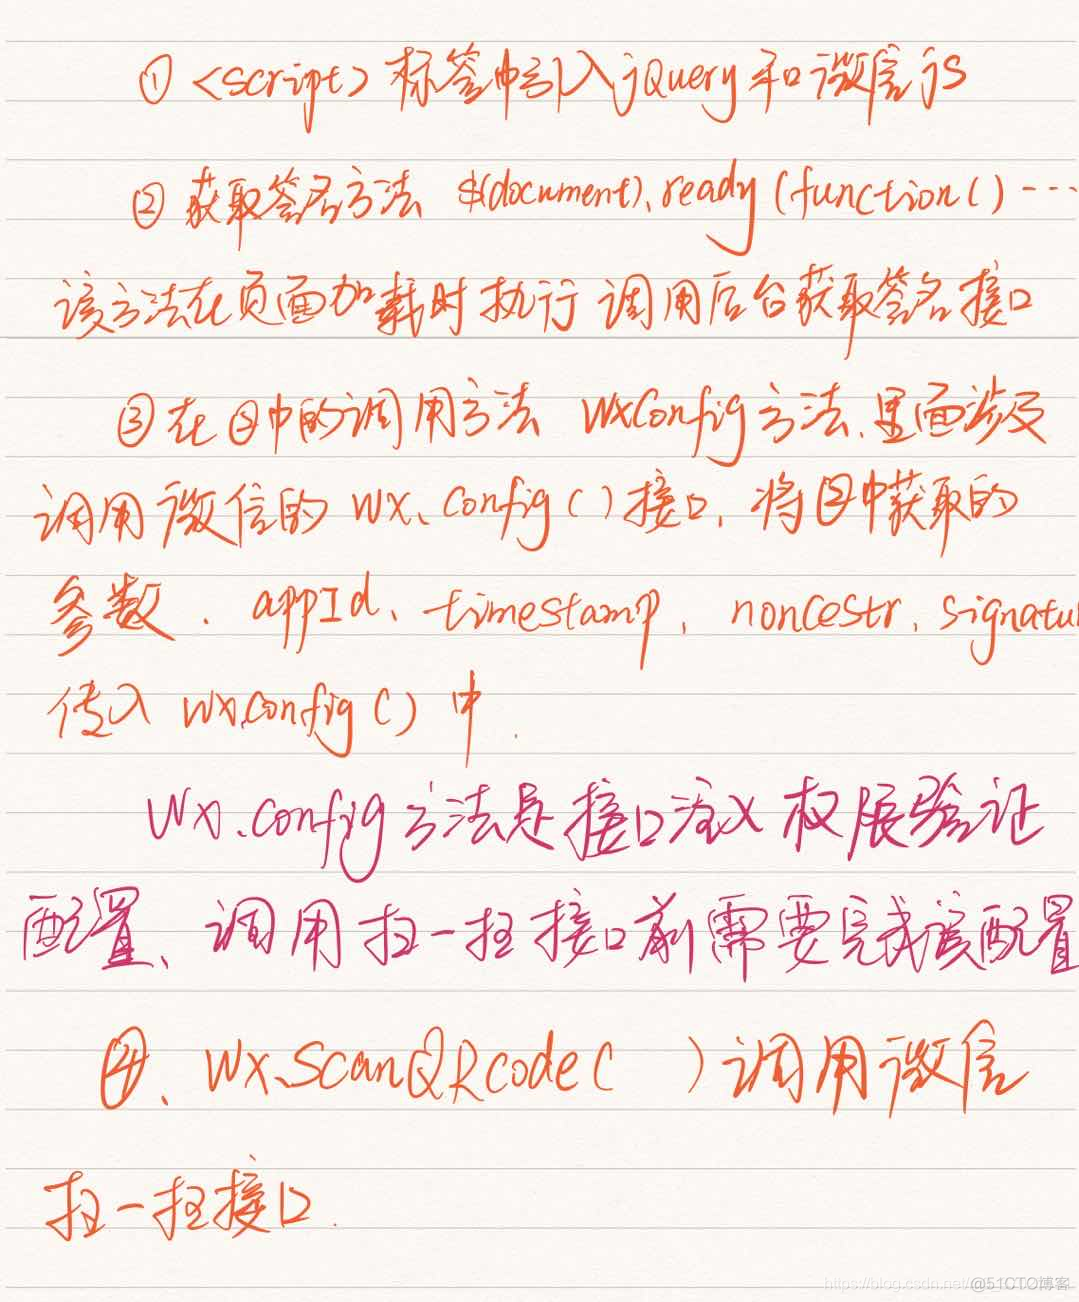 ① <script>标签中引入jQuery和微信js
② 获取签名方法 $(document).ready(function()……
该方法在页面加载时执行 调用后台获取签名接口
③ 在②中的调用方法 wxConfig方法、里面涉及
调用微信的 wx.config()接口,将②中获取的
参数、appId、timestamp,noncestr,signatur
传入wx.config()中.
wx.config方法是接口注入权限验证
配置、调用扫一扫接口前需要完成该配置
④、wx.ScanQRcode( )调用微信
扫一扫接口.
https://blog.csdn.net/ @51CTO博客